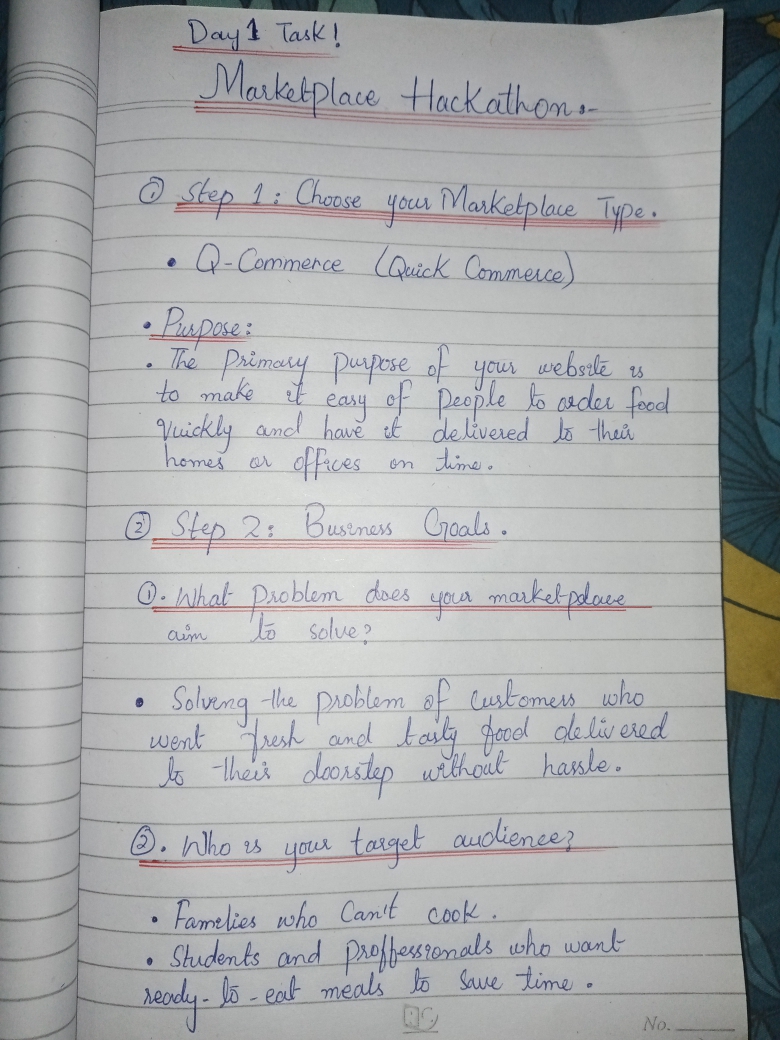 Day 1 Task!
Marketplace Hackathon:-
① Step 1: Choose your Marketplace Type.
• Q-Commerce (Quick Commerce)
• Purpose:
• The Primary purpose of your website is
to make it easy of people to order food
quickly and have it delivered to their
homes or offices on time.
② Step 2: Business Goals.
①. What problem does your marketpalace
aim to solve?
• Solving the problem of customers who
went fresh and tasty food delivered
to their doorstep without hassle.
②. Who is your target audience?
• Famelies who Can't cook.
• Students and proffessionals who want
ready-to-eat meals to save time.
No.